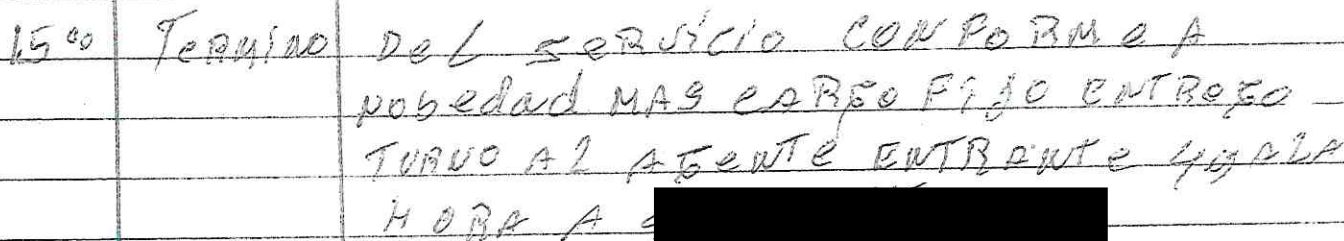 15°° Termino Del servicio conforme A
nobedad MAS cargo Fijo entrego
Turno A2 Agente entrante
HORA A